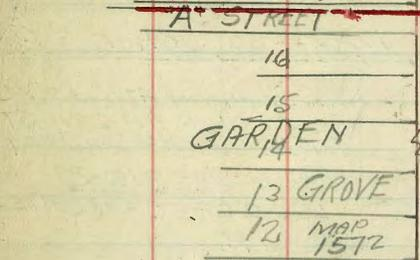 A STREET
16
15
GARDEN
14
13 GROVE
12 MAP
1572